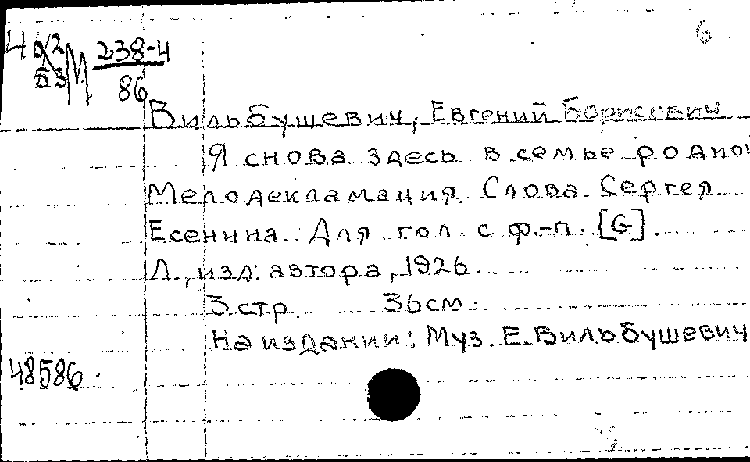 6
М 238-4
86
Вильбушевич, Евгений Борисович
Я снова здесь в семье родной
Мелодекламация. Слова Сергея
Есенина. Для гол. с ф.-п. [G].
Л., изд. автора, 1926.
3 стр. 36 см.
На издании: Муз. Е. Вильбушевич
48586.